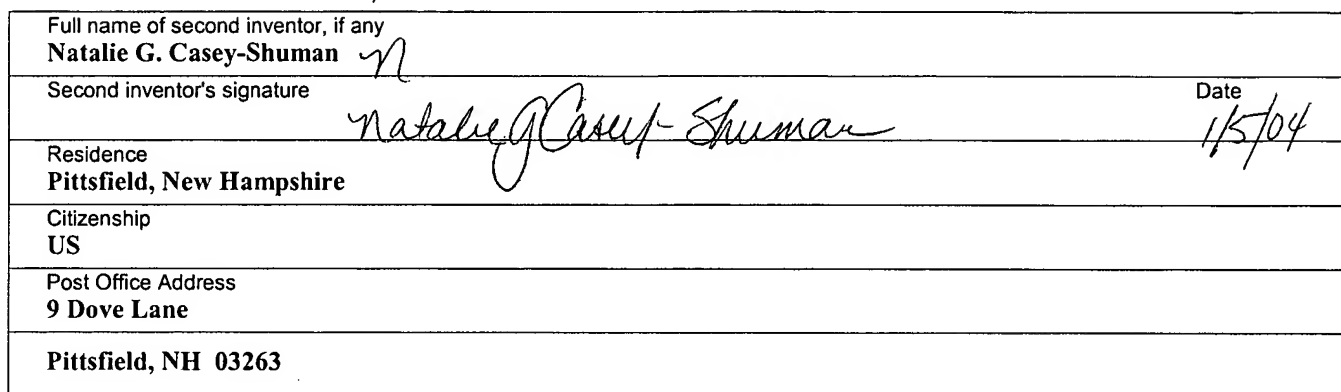 Full name of second inventor, if any
Natalie G. Casey-Shuman n
Second inventor's signature Date
Natalie G Casey-Shuman 1/5/04
Residence
Pittsfield, New Hampshire
Citizenship
US
Post Office Address
9 Dove Lane
Pittsfield, NH 03263